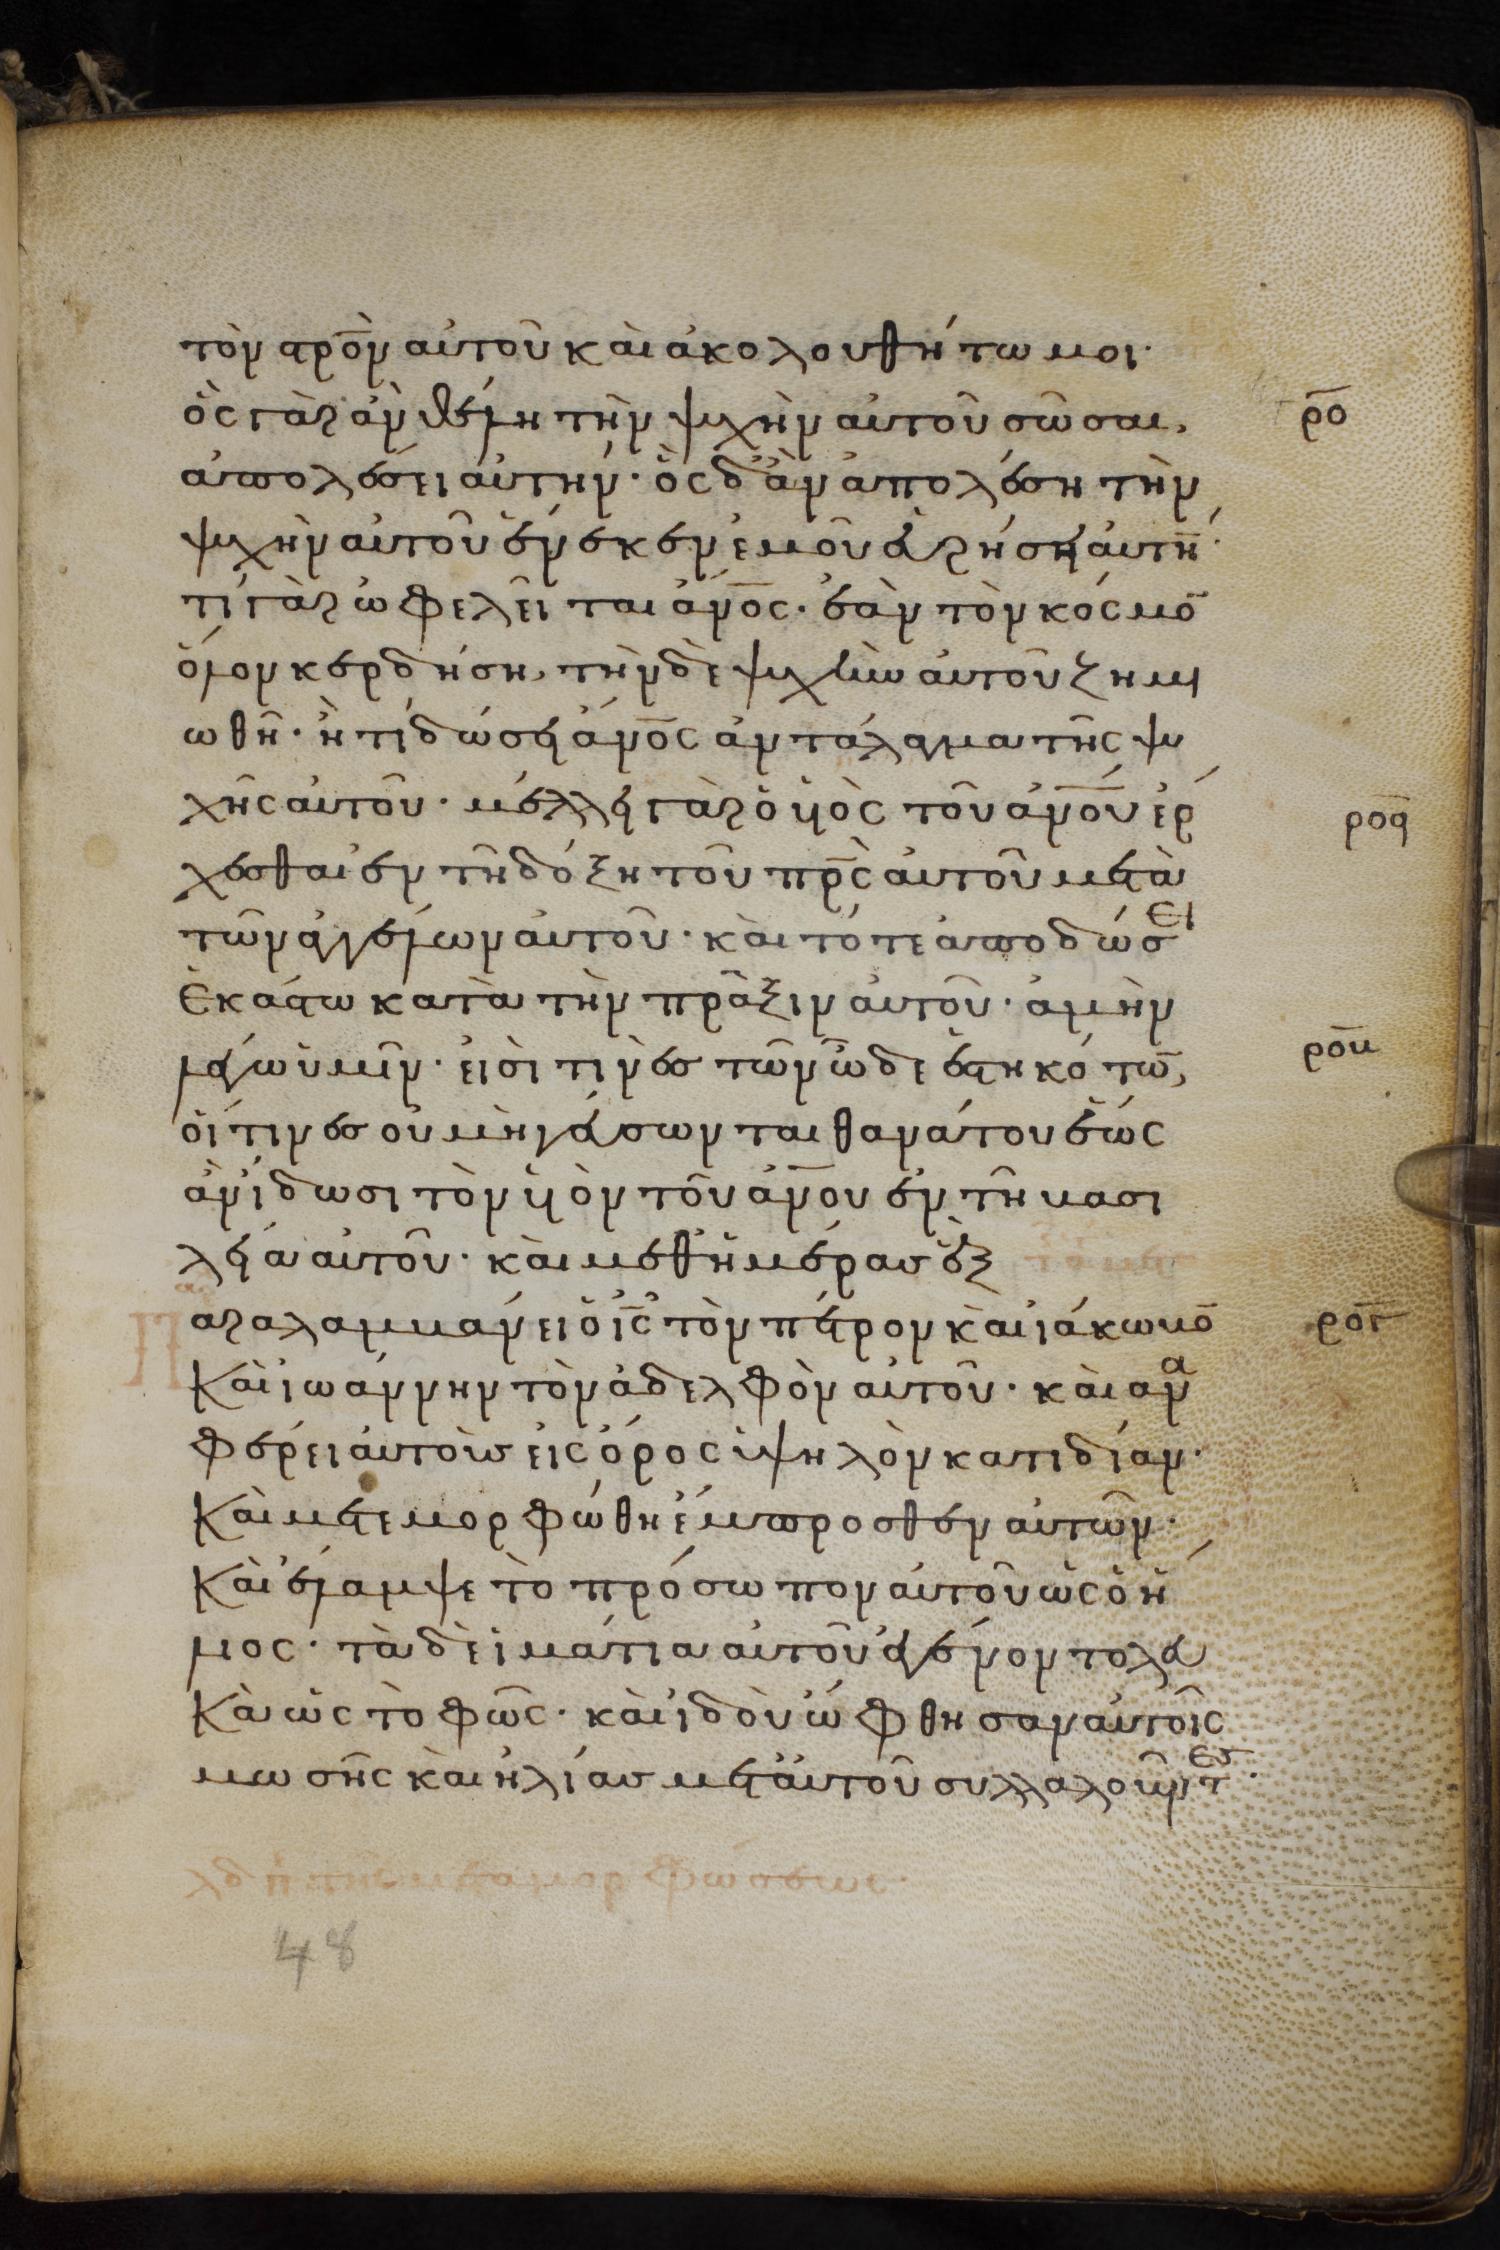 τὸν στρ̅ο̅ν αὐτοῦ καὶ ἀκολουθήτω μοι·
ὃς γὰρ ἂν θέλη τὴν ψυχὴν αὐτοῦ σῶσαι,
ρ̅ο̅
ἀπολέσει αὐτήν· ὃς δ' ἂν ἀπολέση τὴν
ψυχὴν αὐτοῦ ἕνεκεν ἐμοῦ εὑρήσει αὐτή̅·
τί γὰρ ὠφελεῖται ἄν̅ο̅ς· ἐὰν τὸν κόσμο̅
ὅλον κερδήση, τὴν δὲ ψυχὴν αὐτοῦ ζημι
ωθῆ· ἢ τί δώσει ἄν̅ο̅ς ἀντάλαγμα τῆς ψυ
χῆς αὐτοῦ· μέλλει γὰρ ὁ υἱὸς τοῦ ἀν̅ο̅υ̅ ἔρ
ρ̅ο̅α̅
χεσθαι ἐν τῆ δόξη τοῦ π̅ρ̅ς̅ αὐτοῦ μετὰ
τῶν ἀγγέλων αὐτοῦ· καὶ τότε ἀποδώσει
ἑκάστω κατὰ τὴν πρᾶξιν αὐτοῦ· ἀμὴν
λέγω ὑμῖν· εἰσί τινες τῶν ὧδε ἑστηκότω̅,
ρ̅ο̅β̅
οἵτινες οὐ μὴ γεύσωνται θανάτου ἕως
ἂν ἴδωσι τὸν υἱὸν τοῦ ἀν̅ο̅υ̅ ἐν τῆ βασι
λεία αὐτοῦ· καὶ μεθ' ἡμέρας ἓξ
αραλαμβάνει ὁ ι̅ς̅ τὸν πέτρον καὶ ἰάκωβο̅
ρ̅ο̅γ̅
Καὶ ἰωάννην τὸν ἀδελφὸν αὐτοῦ· καὶ ἀνα
φέρει αὐτοὺς εἰς ὄρος ὑψηλὸν κατιδίαν·
Καὶ μετεμορφώθη ἔμπροσθεν αὐτῶν·
Καὶ ἔλαμψε τὸ πρόσωπον αὐτοῦ ὡς ὁ ἥ
λιος· τὰ δὲ ἱμάτια αὐτοῦ ἐγένοντο λευ
Κὰ ὡς τὸ φῶς· καὶ ἰδοὺ ὤφθησαν αὐτοῖς
μωσῆς καὶ ἠλίας μετ' αὐτοῦ συλλαλοῦντες·
λδ π τῆς μεταμορφώσεως·
48